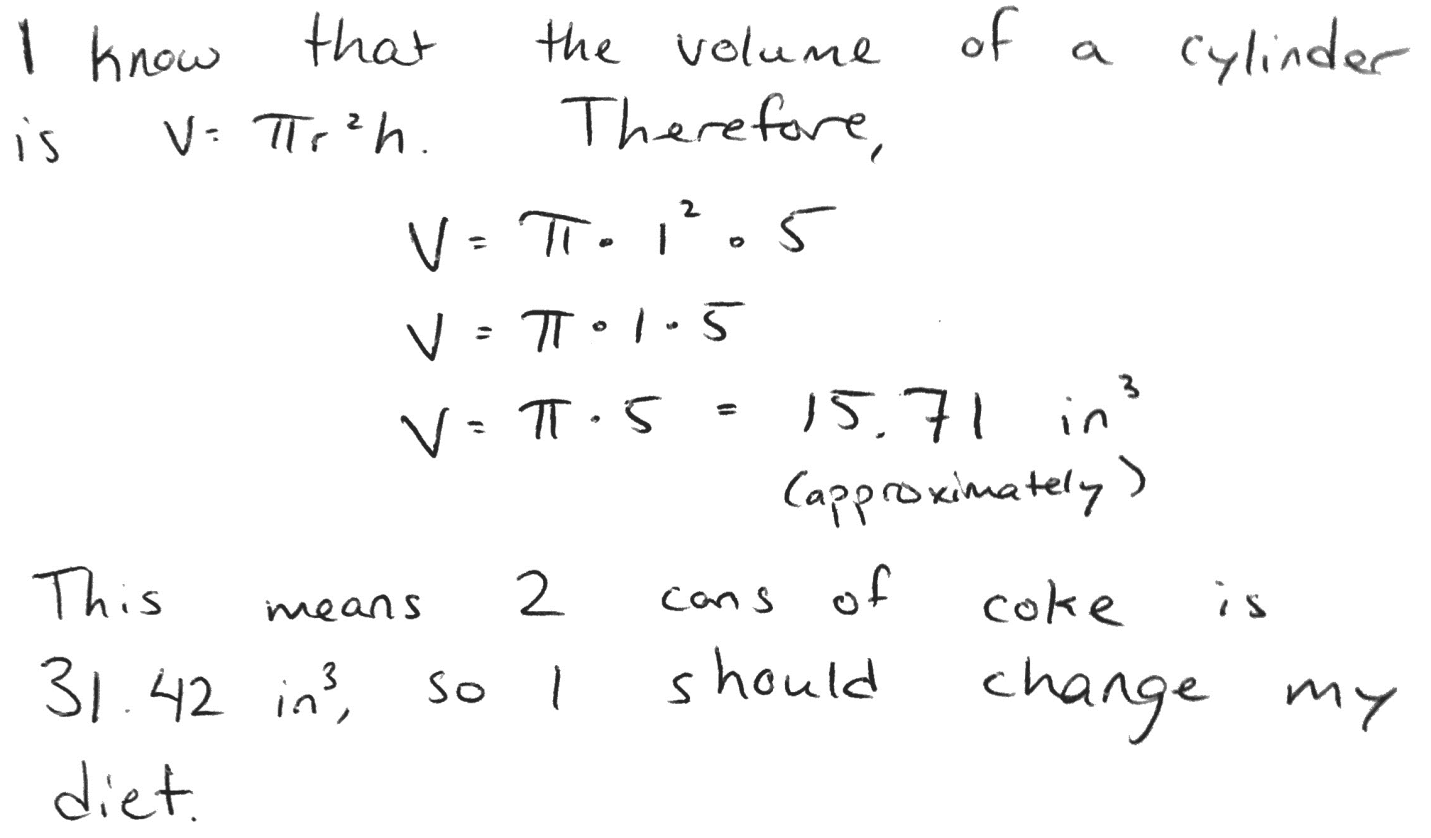 I know that the volume of a cylinder
is V = πr²h. Therefore,
V = π · 1² · 5
V = π · 1 · 5
V = π · 5 = 15.71 in³
(approximately)
This means 2 cans of coke is
31.42 in³, so I should change my
diet.